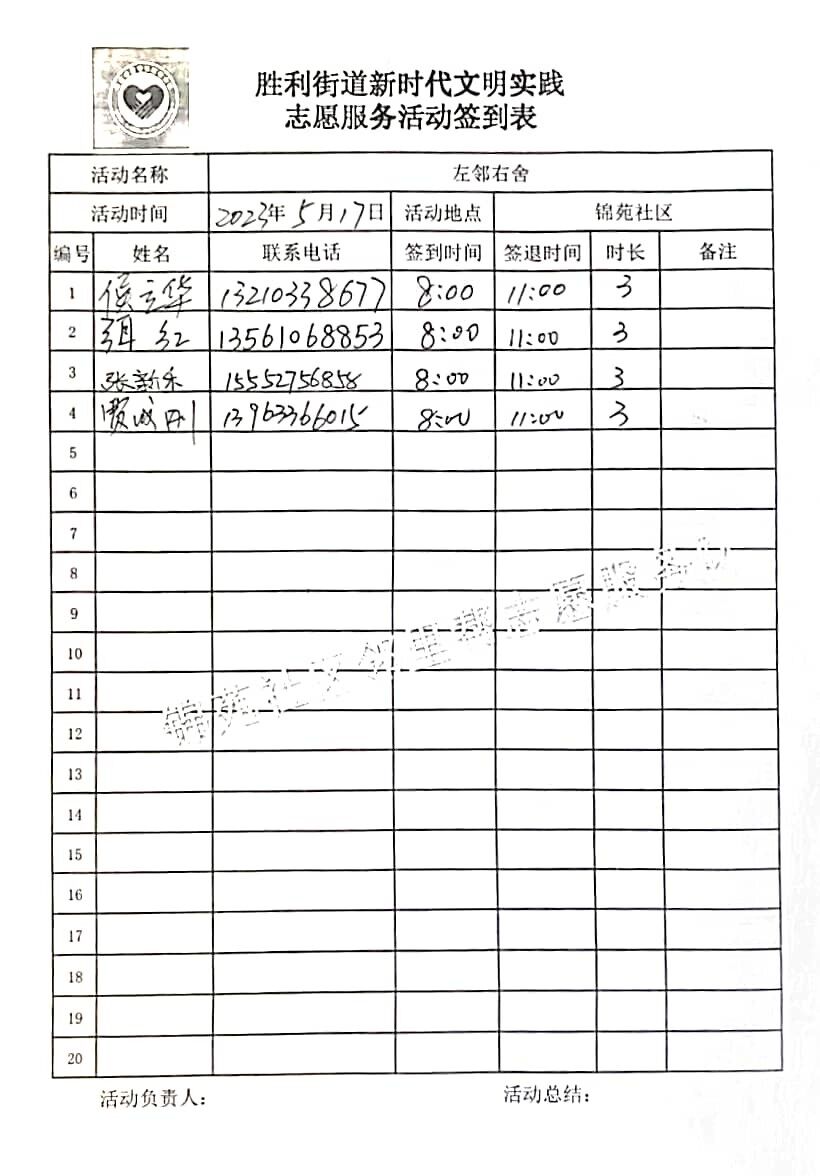 胜利街道新时代文明实践
志愿服务活动签到表
活动名称 左邻右舍
活动时间 2023年5月17日 活动地点 锦苑社区
编号 姓名 联系电话 签到时间 签退时间 时长 备注
1 侯立华 13210338677 8:00 11:00 3
2 红 13561068853 8:00 11:00 3
3 张新禾 15552756858 8:00 11:00 3
4 贾成刚 13963366015 8:00 11:00 3
5
6
7
8
9
10
11
12
13
14
15
16
17
18
19
20
锦苑社区邻里帮志愿服务队
活动负责人: 活动总结: